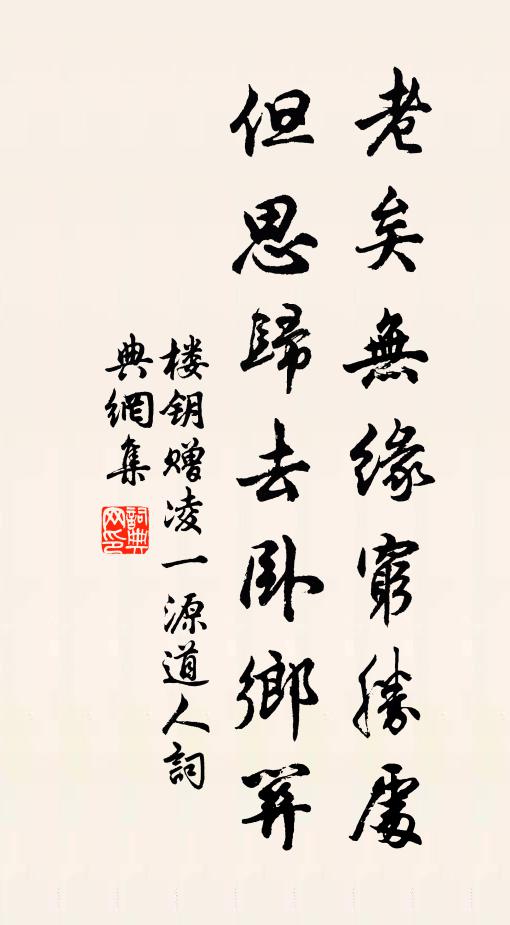 老矣無緣窮勝處
但思歸去卧鄉笄
楼钥赠凌一源道人詞
典網集
詞典
网印